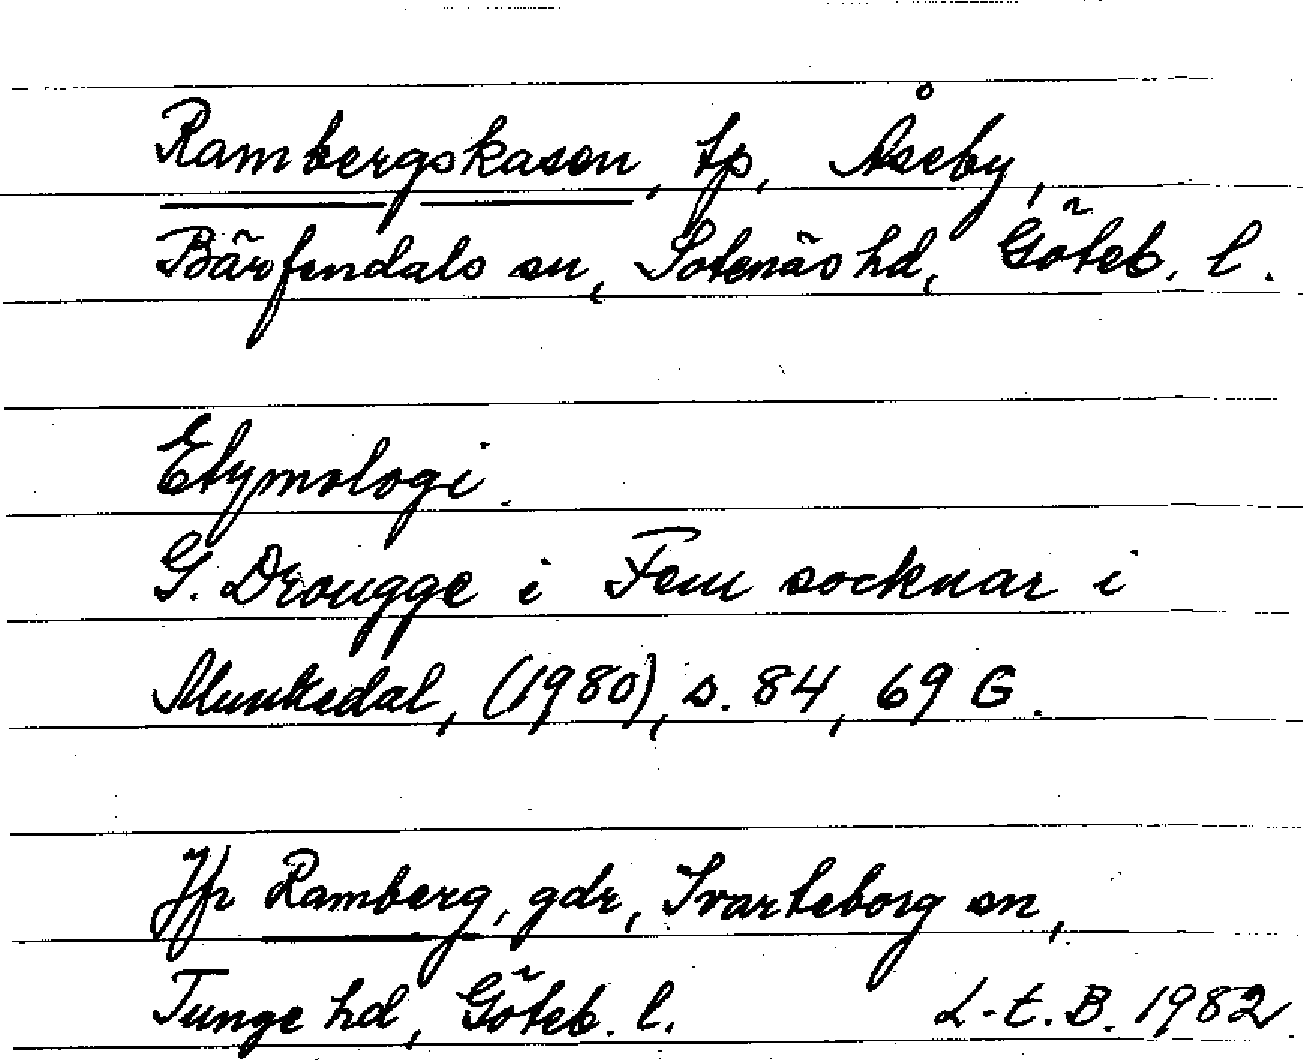 Rambergskasen, tp, Åseby,
Bärfendals sn, Sotenäs hd, Göteb. l.
Etymologi.
G. Drougge i Fem socknar i
Munkedal, (1980), s. 84, 69 G.
Jfr Ramberg, gdr, Svarteborg sn,
Tunge hd, Göteb. l. L-E.B. 1982.